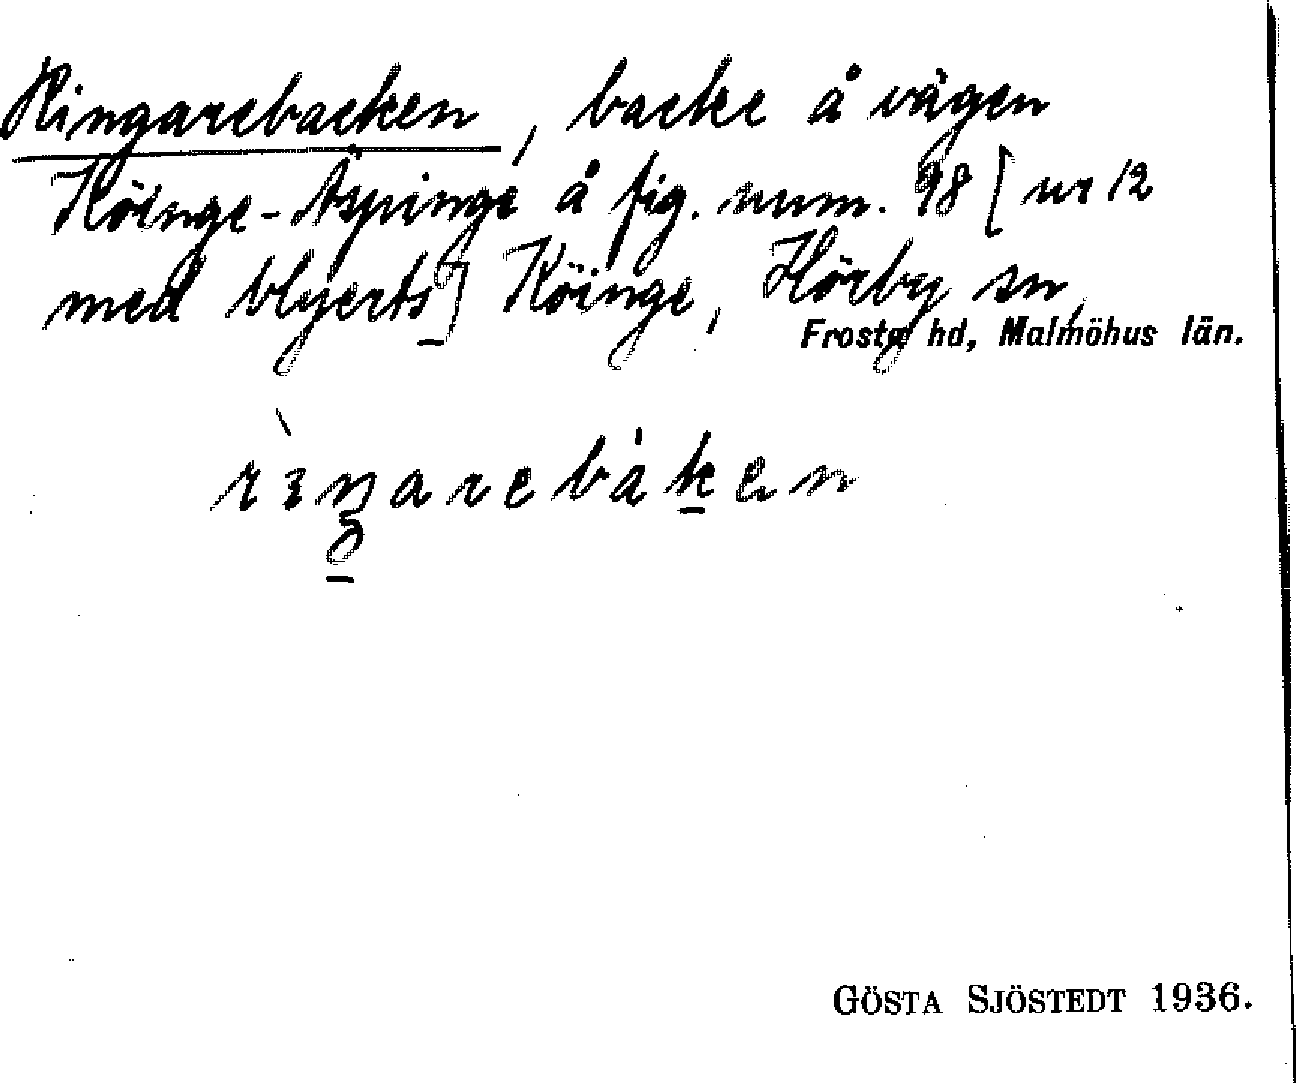 Ringarebacken, backe å vägen
Köinge-Äspinge å fig. num. 98 [nr 12
med blyerts] Köinge, Hörby sn,
Frosta hd, Malmöhus län.
GÖSTA SJÖSTEDT 1936.